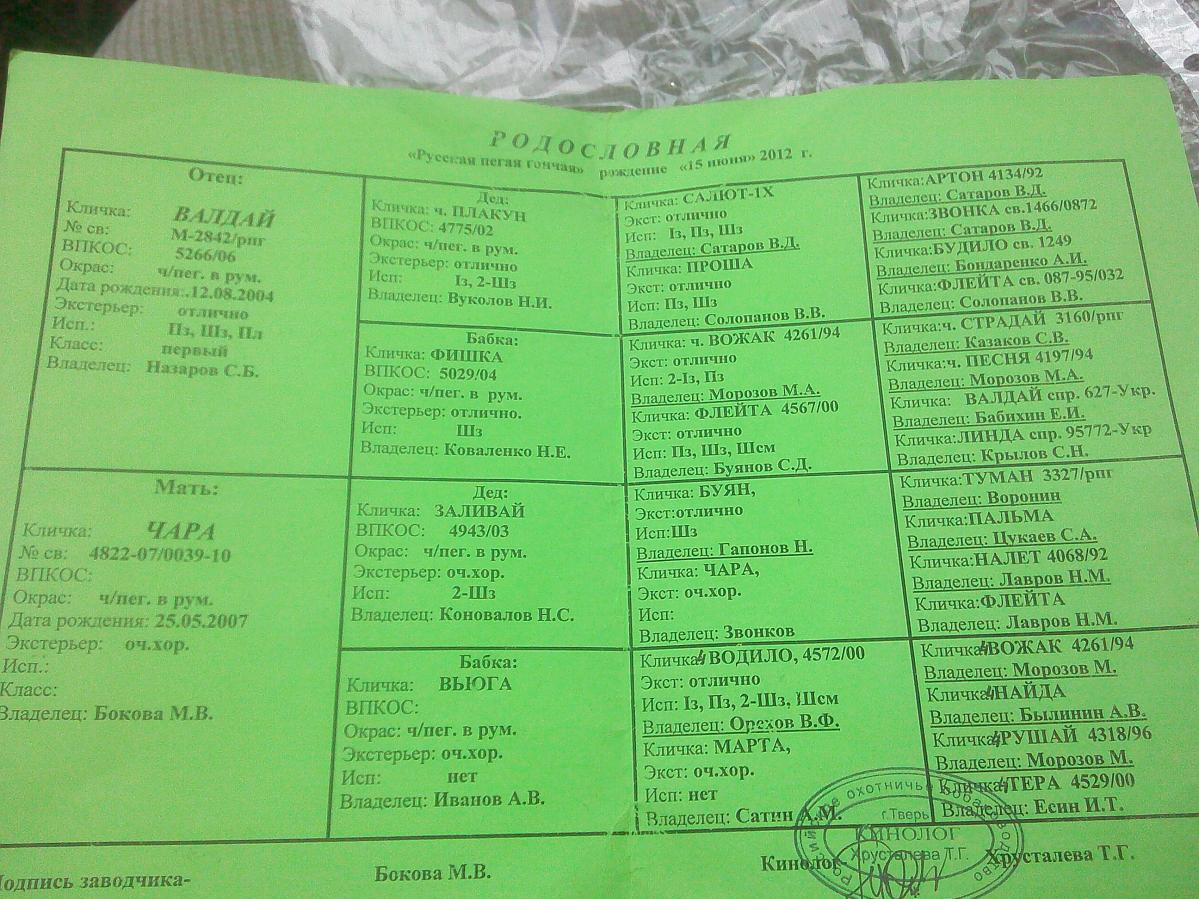 РОДОСЛОВНАЯ
«Русская пегая гончая» рождение «15 июня» 2012 г.
Отец:
Кличка: ВАЛДАЙ
№ св: М-2842/рпг
ВПКОС: 5266/06
Окрас: ч/пег. в рум.
Дата рождения:.12.08.2004
Экстерьер: отлично
Исп.: Пз, Шз, Пл
Класс: первый
Владелец: Назаров С.Б.
Дед:
Кличка: ч. ПЛАКУН
ВПКОС: 4775/02
Окрас: ч/пег. в рум.
Экстерьер: отлично
Исп: Iз, 2-Шз
Владелец: Вуколов Н.И.
Бабка:
Кличка: ФИШКА
ВПКОС: 5029/04
Окрас: ч/пег. в рум.
Экстерьер: отлично.
Исп: Шз
Владелец: Коваленко Н.Е.
Кличка: САЛЮТ-1Х
Экст: отлично
Исп: Iз, Пз, Шз
Владелец: Сатаров В.Д.
Кличка: ПРОША
Экст: отлично
Исп: Пз, Шз
Владелец: Солопанов В.В.
Кличка: ч. ВОЖАК 4261/94
Экст: отлично
Исп: 2-Iз, Пз
Владелец: Морозов М.А.
Кличка: ФЛЕЙТА 4567/00
Экст: отлично
Исп: Пз, Шз, Шсм
Владелец: Буянов С.Д.
Кличка:АРТОН 4134/92
Владелец: Сатаров В.Д.
Кличка:ЗВОНКА св.1466/0872
Владелец: Сатаров В.Д.
Кличка:БУДИЛО св. 1249
Владелец: Бондаренко А.И.
Кличка:ФЛЕЙТА св. 087-95/032
Владелец: Солопанов В.В.
Кличка:ч. СТРАДАЙ 3160/рпг
Владелец: Казаков С.В.
Кличка:ч. ПЕСНЯ 4197/94
Владелец: Морозов М.А.
Кличка: ВАЛДАЙ спр. 627-Укр.
Владелец: Бабихин Е.И.
Кличка:ЛИНДА спр. 95772-Укр
Владелец: Крылов С.Н.
Мать:
Кличка: ЧАРА
№ св: 4822-07/0039-10
ВПКОС:
Окрас: ч/пег. в рум.
Дата рождения: 25.05.2007
Экстерьер: оч.хор.
Исп.:
Класс:
Владелец: Бокова М.В.
Дед:
Кличка: ЗАЛИВАЙ
ВПКОС: 4943/03
Окрас: ч/пег. в рум.
Экстерьер: оч.хор.
Исп: 2-Шз
Владелец: Коновалов Н.С.
Бабка:
Кличка: ВЬЮГА
ВПКОС:
Окрас: ч/пег. в рум.
Экстерьер: оч.хор.
Исп: нет
Владелец: Иванов А.В.
Кличка: БУЯН,
Экст:отлично
Исп:Шз
Владелец: Гапонов Н.
Кличка: ЧАРА,
Экст: оч.хор.
Исп:
Владелец: Звонков
Кличка ч ВОДИЛО, 4572/00
Экст: отлично
Исп: Iз, Пз, 2-Шз, Шсм
Владелец: Орехов В.Ф.
Кличка: МАРТА,
Экст: оч.хор.
Исп: нет
Владелец: Сатин А.М.
Кличка:ТУМАН 3327/рпг
Владелец: Воронин
Кличка:ПАЛЬМА
Владелец: Цукаев С.А.
Кличка:НАЛЕТ 4068/92
Владелец: Лавров Н.М.
Кличка:ФЛЕЙТА
Владелец: Лавров Н.М.
Кличка ч ВОЖАК 4261/94
Владелец: Морозов М.
Кличка ч НАЙДА
Владелец: Былинин А.В.
Кличка ч РУШАЙ 4318/96
Владелец: Морозов М.
Кличка ч ТЕРА 4529/00
Владелец: Есин И.Т.
г.Тверь
КИНОЛОГ
Хрусталева Т.Г.
Подпись заводчика- Бокова М.В. Кинолог- Хрусталева Т.Г.